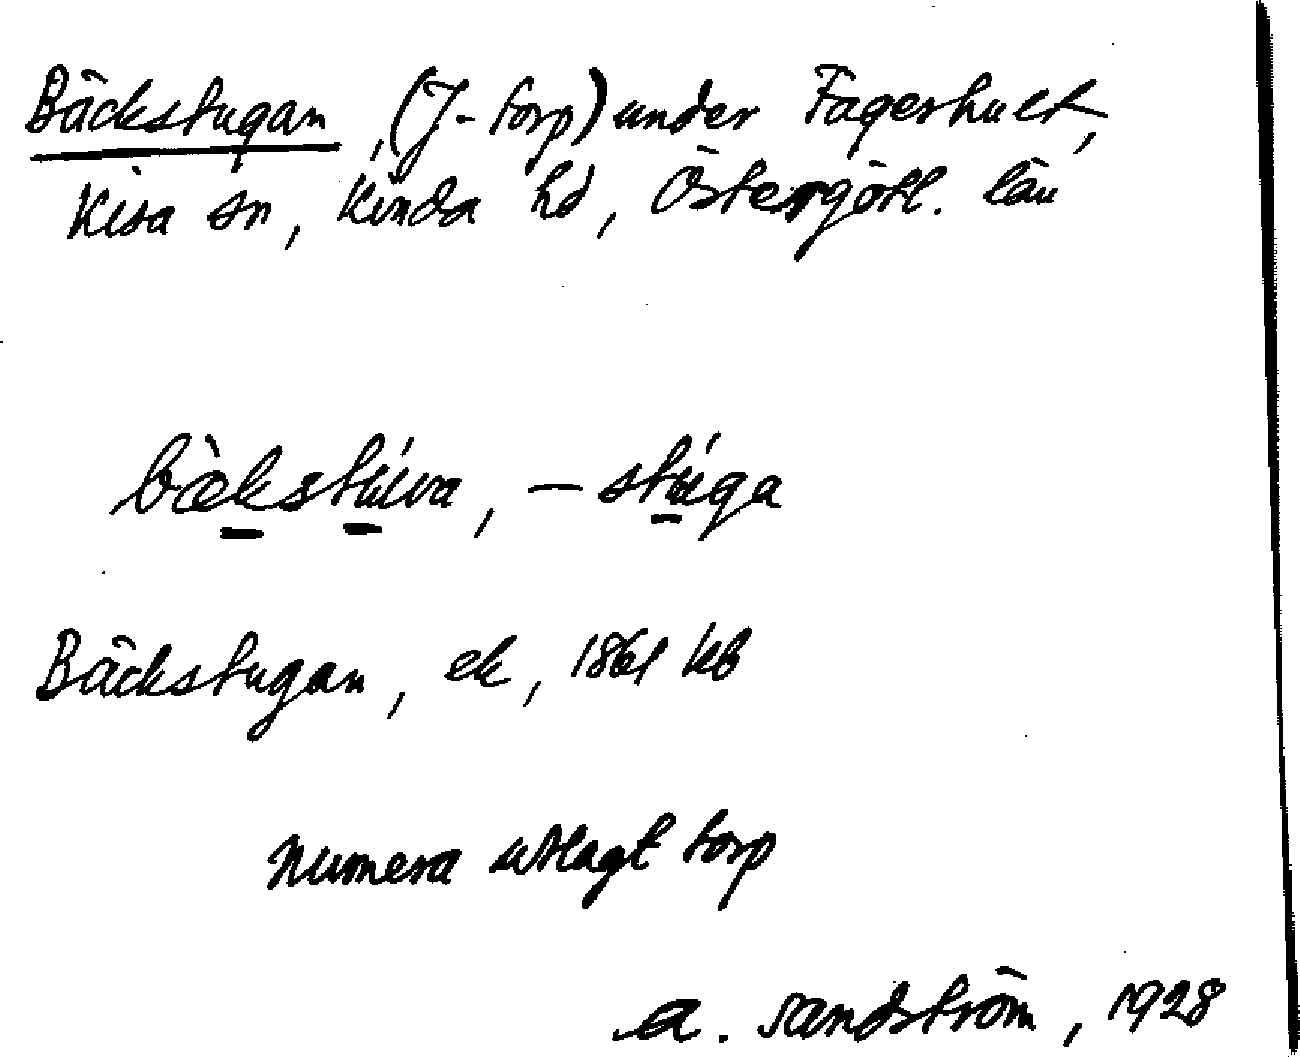 Bäckstugan, (J-torp) under Fagerhult,
Kisa sn, Kinda hd, Östergötl. län
bæ̀kstúwa, – stúga
Bäckstugan, ek, 1861 kb
Numera utlagt torp
A. Sandström, 1928